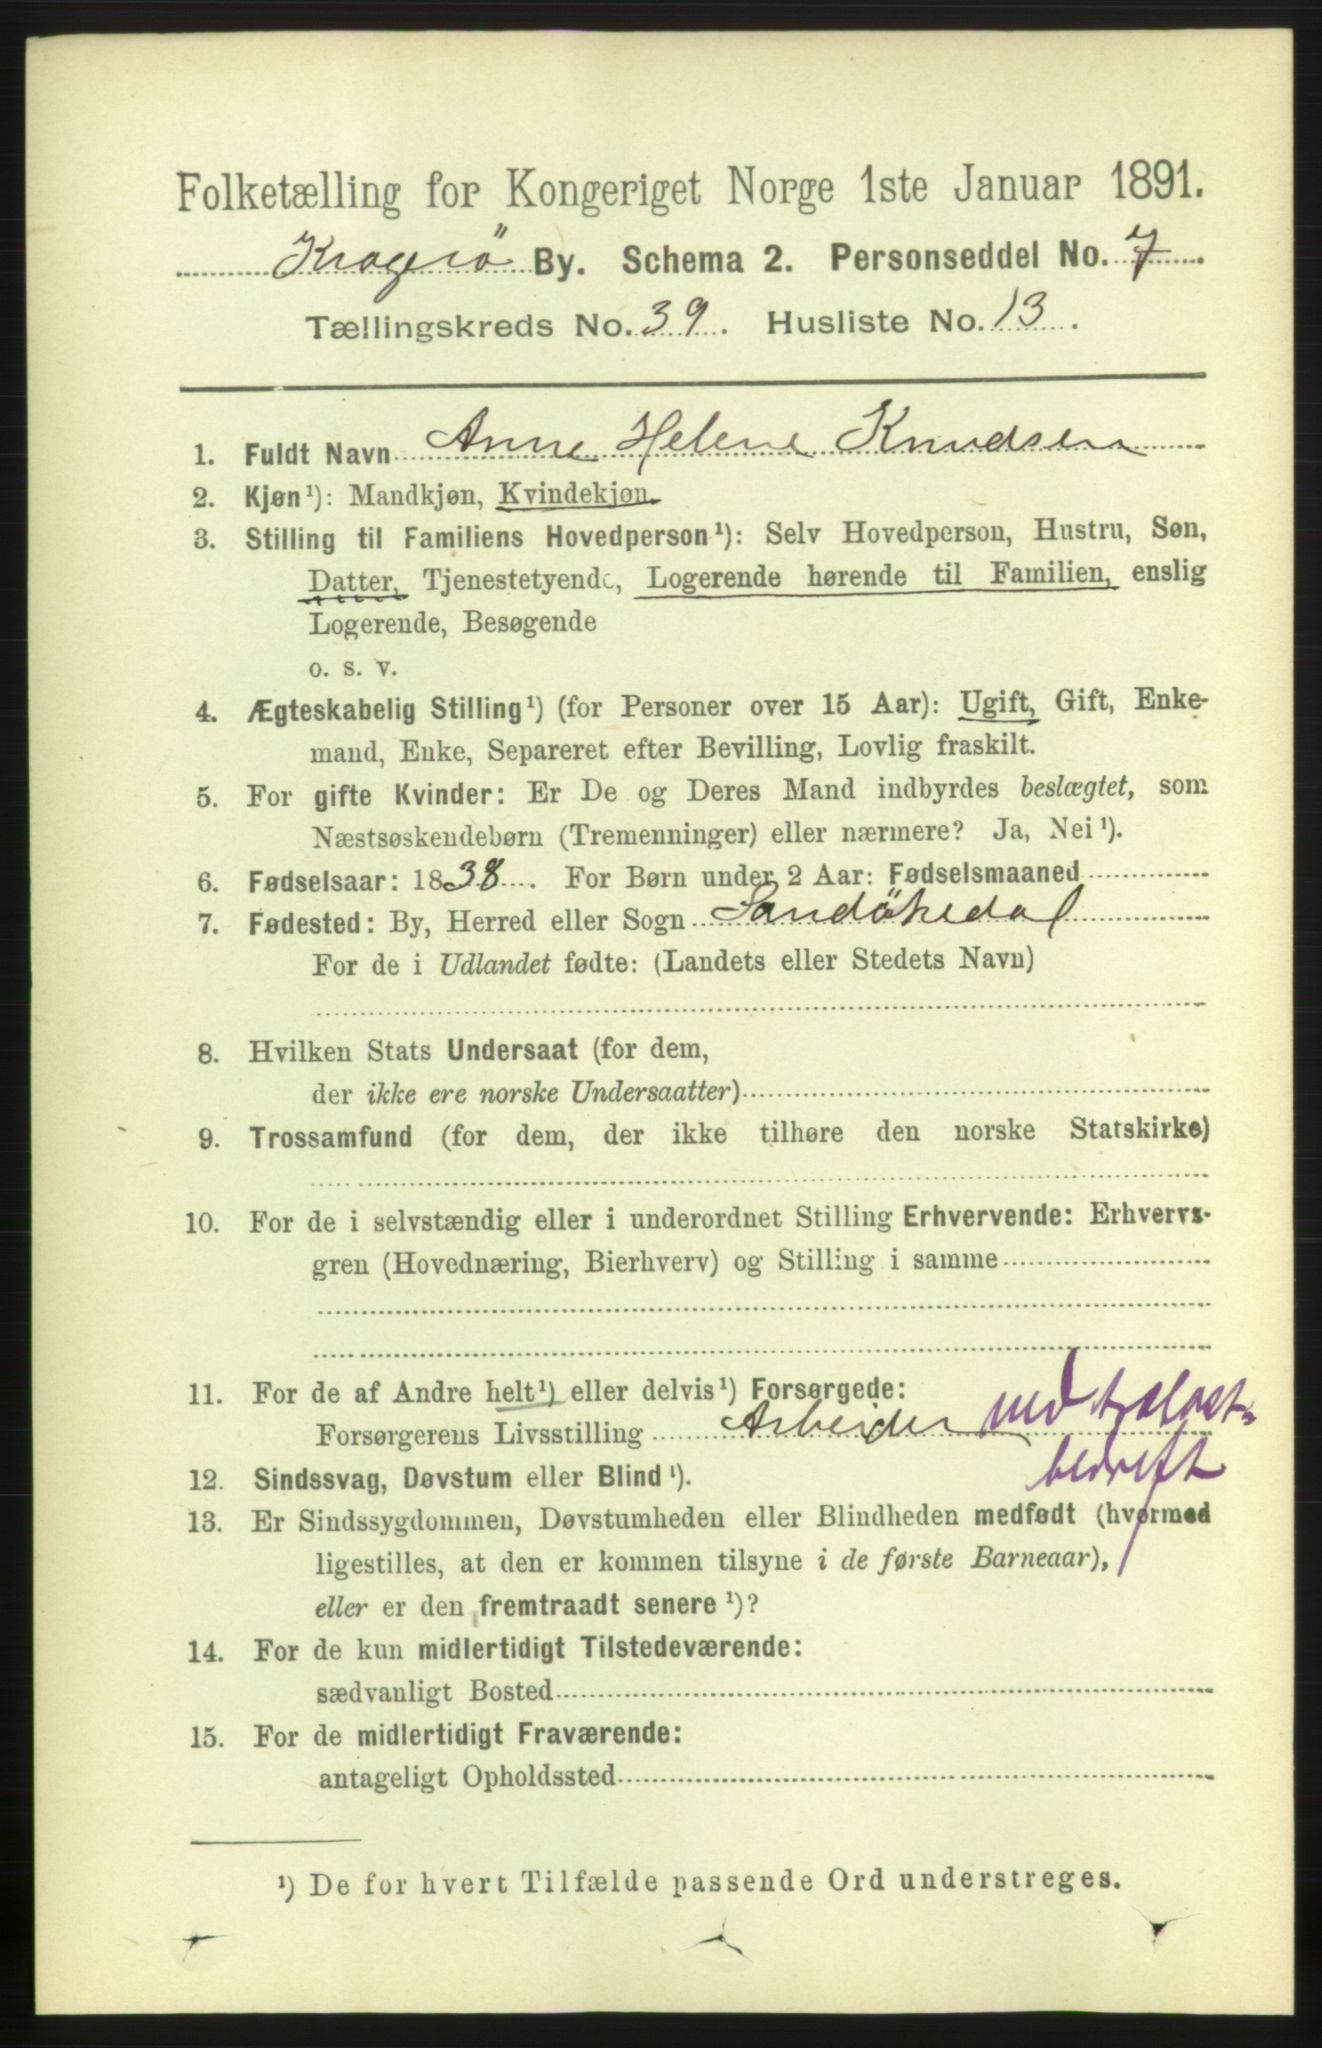 Folketælling for Kongeriget Norge 1ste Januar 1891.
Kragerö By. Schema 2. Personseddel No. 7.
Tællingskreds No. 39. Husliste No. 13.
1. Fuldt Navn Anne Helene Knudsen
2. Kjøn¹): Mandkjøn, Kvindekjøn.
3. Stilling til Familiens Hovedperson¹): Selv Hovedperson, Hustru, Søn,
Datter, Tjenestetyende, Logerende hørende til Familien, enslig
Logerende, Besøgende
o. s. v.
4. Ægteskabelig Stilling¹) (for Personer over 15 Aar): Ugift, Gift, Enke-
mand, Enke, Separeret efter Bevilling, Lovlig fraskilt.
5. For gifte Kvinder: Er De og Deres Mand indbyrdes beslægtet, som
Næstsøskendebørn (Tremenninger) eller nærmere? Ja, Nei¹).
6. Fødselsaar: 1838. For Børn under 2 Aar: Fødselsmaaned
7. Fødested: By, Herred eller Sogn Sandökedal
For de i Udlandet fødte: (Landets eller Stedets Navn)
8. Hvilken Stats Undersaat (for dem,
der ikke ere norske Undersaatter)
9. Trossamfund (for dem, der ikke tilhøre den norske Statskirke)
10. For de i selvstændig eller i underordnet Stilling Erhvervende: Erhvervs-
gren (Hovednæring, Bierhverv) og Stilling i samme
11. For de af Andre helt¹) eller delvis¹) Forsørgede:
Forsørgerens Livsstilling Arbeider ved trælast-
bedrift
12. Sindssvag, Døvstum eller Blind¹).
13. Er Sindssygdommen, Døvstumheden eller Blindheden medfødt (hvormed
ligestilles, at den er kommen tilsyne i de første Barneaar),
eller er den fremtraadt senere¹)?
14. For de kun midlertidigt Tilstedeværende:
sædvanligt Bosted
15. For de midlertidigt Fraværende:
antageligt Opholdssted
¹) De for hvert Tilfælde passende Ord understreges.